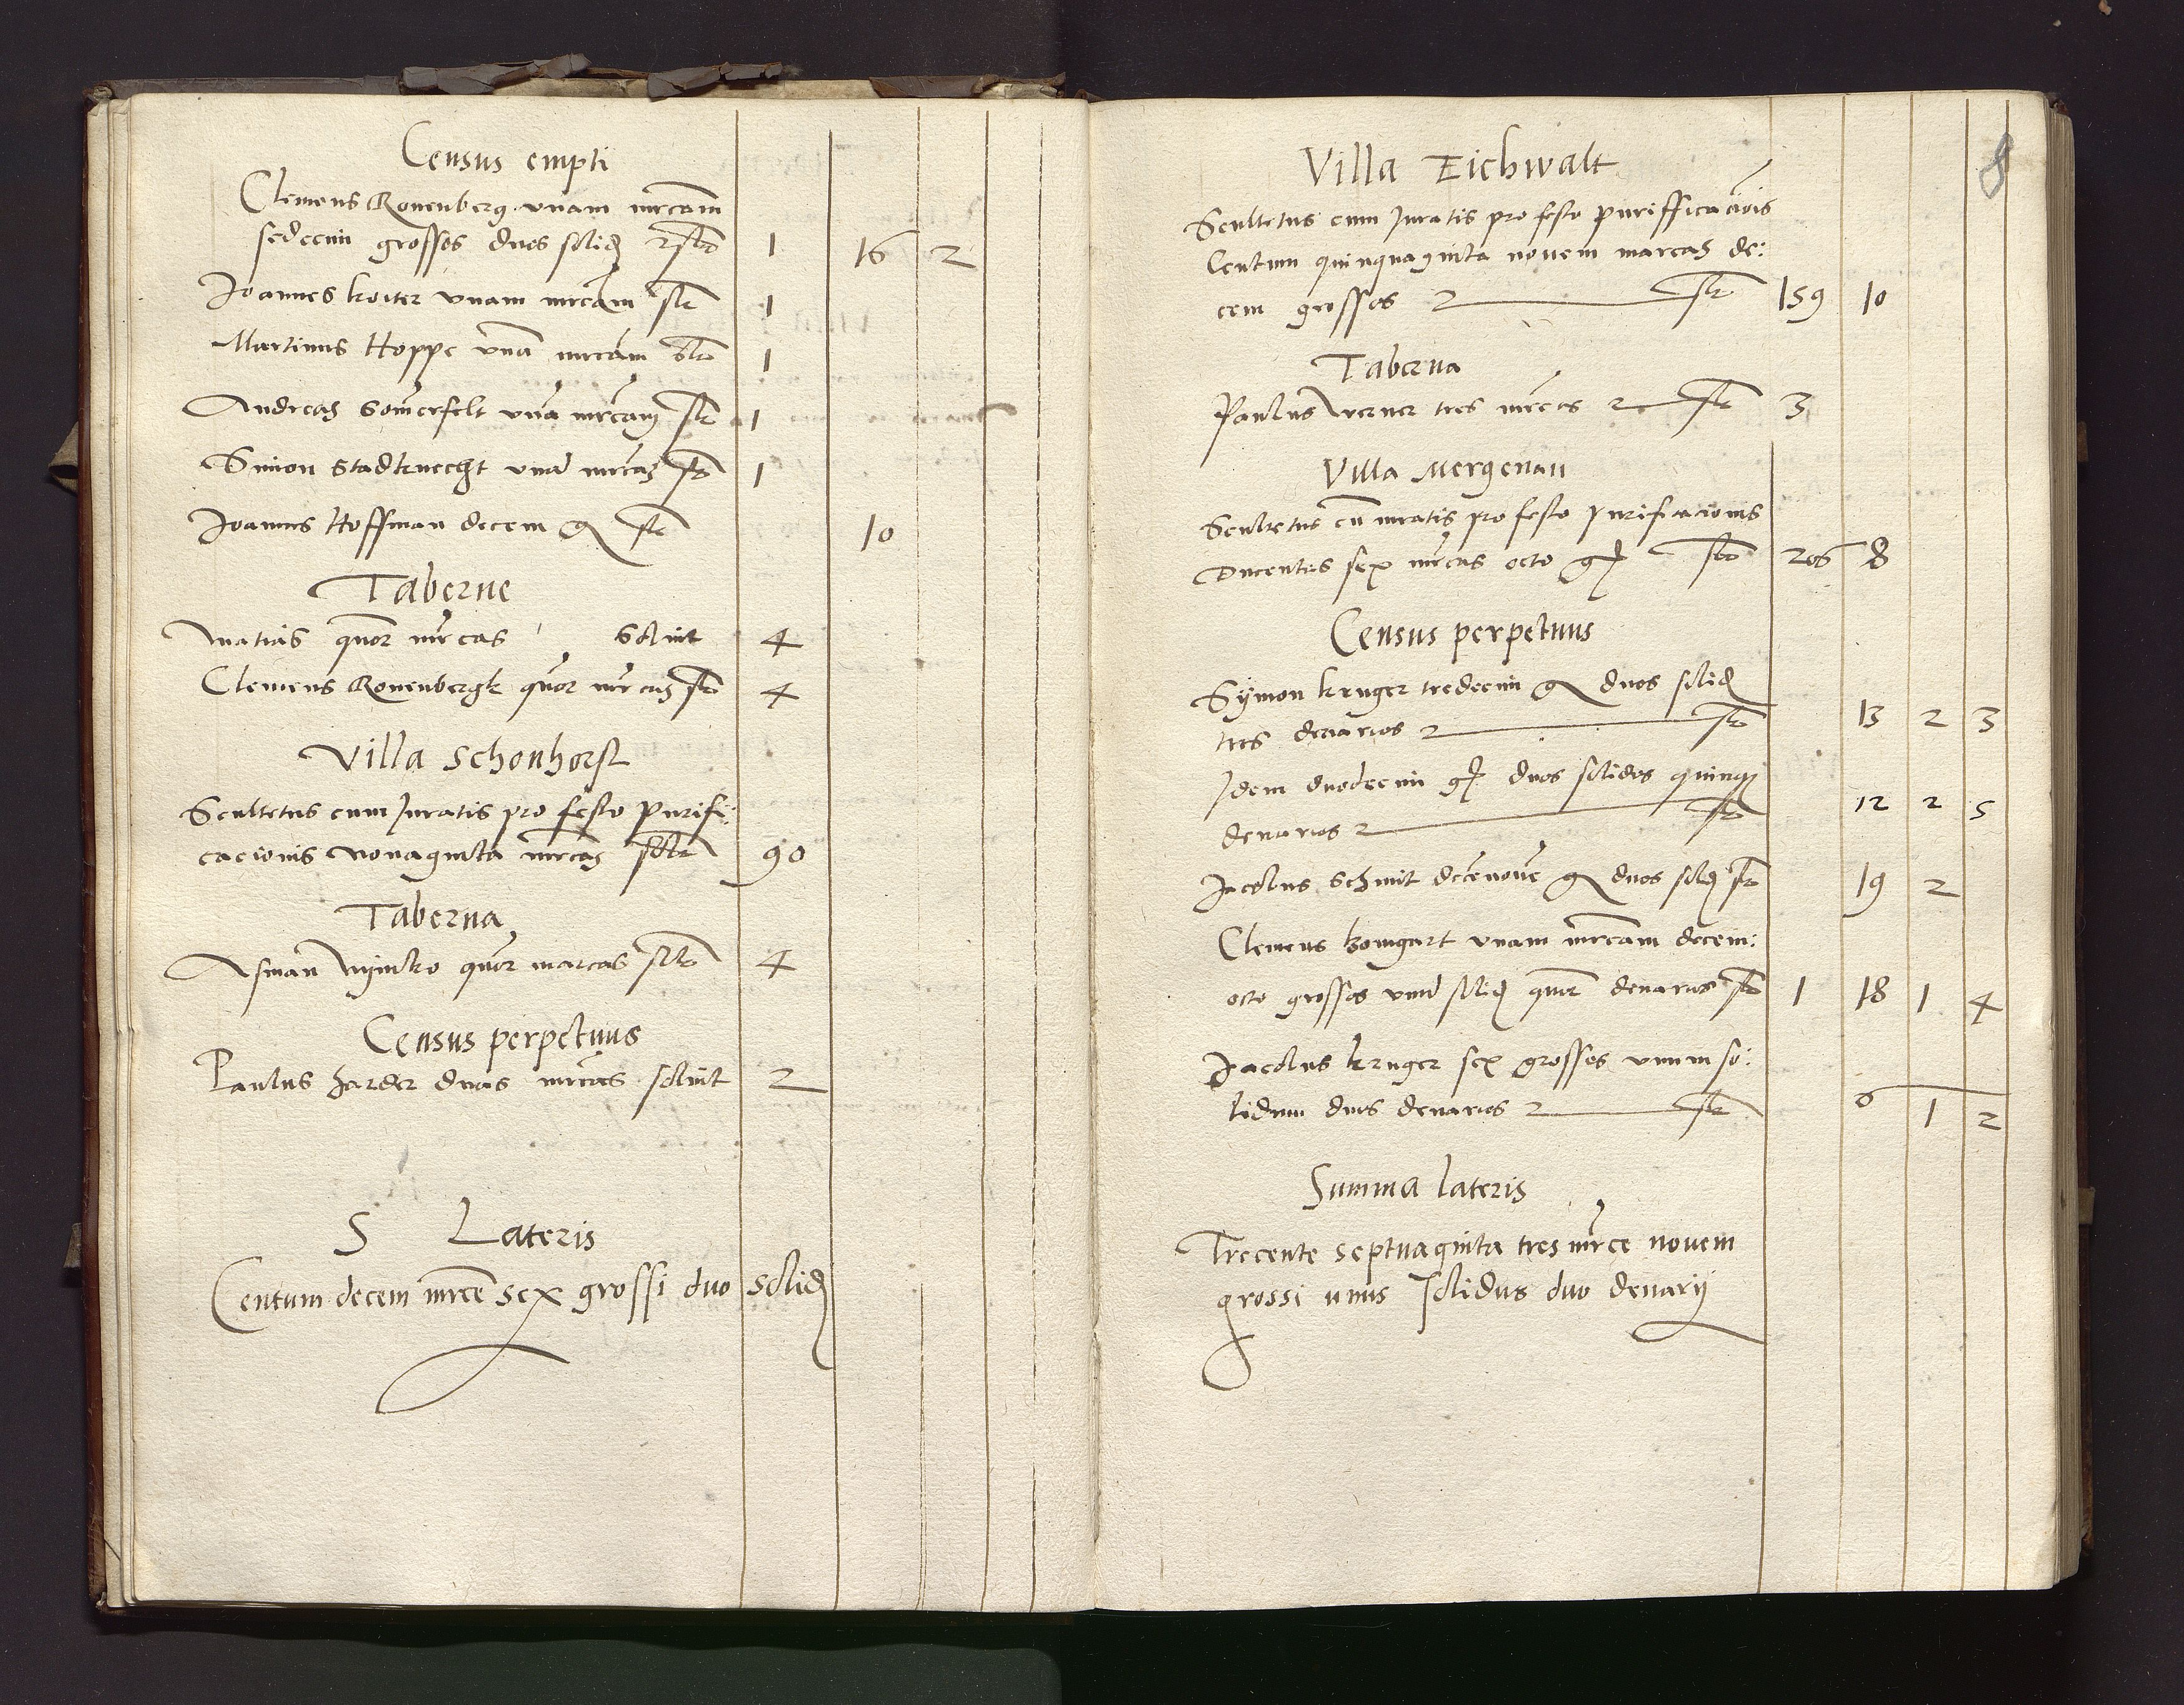 Census empti
Clemens Ronenberg unam mrcam
sedecim grossos duos solid 1 16 2
Joannes kroiter unam mrcam 1
Martinus Hoppe una mrcam 1
Andreas Somerfelt una mrcam 1
Simon Stadknecht una mrcas 1
Joannes Hoffman decem g 10
Taberne
Matias quor mrcas Solvit 4
Clemens Ronenbergk quor mrcas 4
Villa Schonhorst
Scultetus cum Juratis pro festo Purifi:
cacionis Nonaginta mrcas 90
Taberna
Asman quor marcas 4
Census perpetuus
Paulus harder duas mrcas solvit 2
S Lateris
Centum decem mrce sex grossi duo solid
8
Villa Eichwalt
Scultetus cum Juratis pro festo purifficacois
Centum quinquaginta novem marcas de:
cem grossos 159 10
Taberna
Paulus Werner tres mrcas 3
Villa Mergenau
Scultetus cu iuratis pro festo purificacionis
Ducentas sex mrcas octo g 206 8
Census perpetuus
Sÿmon kruger tredecim g duos solid
tres denarios 13 2 3
Idem duodecim g duos solidos quinq
denarios 12 2 5
Jacobus Schmit decenove g duos solid 19 2
Clemens bomgart unam mrcam decem:
octo grossos unu solid quor denarios 1 18 1 4
Jacobus kruger sex grossos unum so:
lidum duos denarios 6 1 2
Summa lateris
Trecente septuaginta tres mrce novem
grossi unus solidus duo denarij